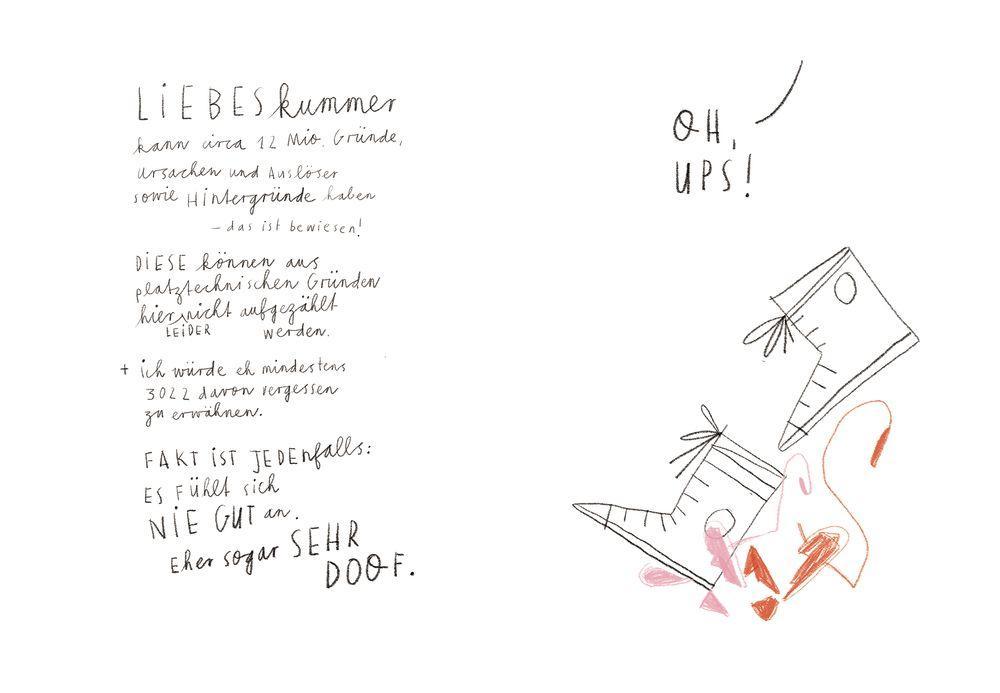 LiEBESkummer
kann circa 12 Mio. Gründe,
Ursachen und Auslöser
sowie Hintergründe haben
– das ist bewiesen!
DiESE können aus
platztechnischen Gründen
hier nicht aufgezählt
LEiDER werden.
+ ich würde eh mindestens
3022 davon vergessen
zu erwähnen.
FAKT iST JEDENfalls:
ES FÜhlt sich
NiE GUT an.
Eher sogar SEHR
DOOF.
OH,
UPS!